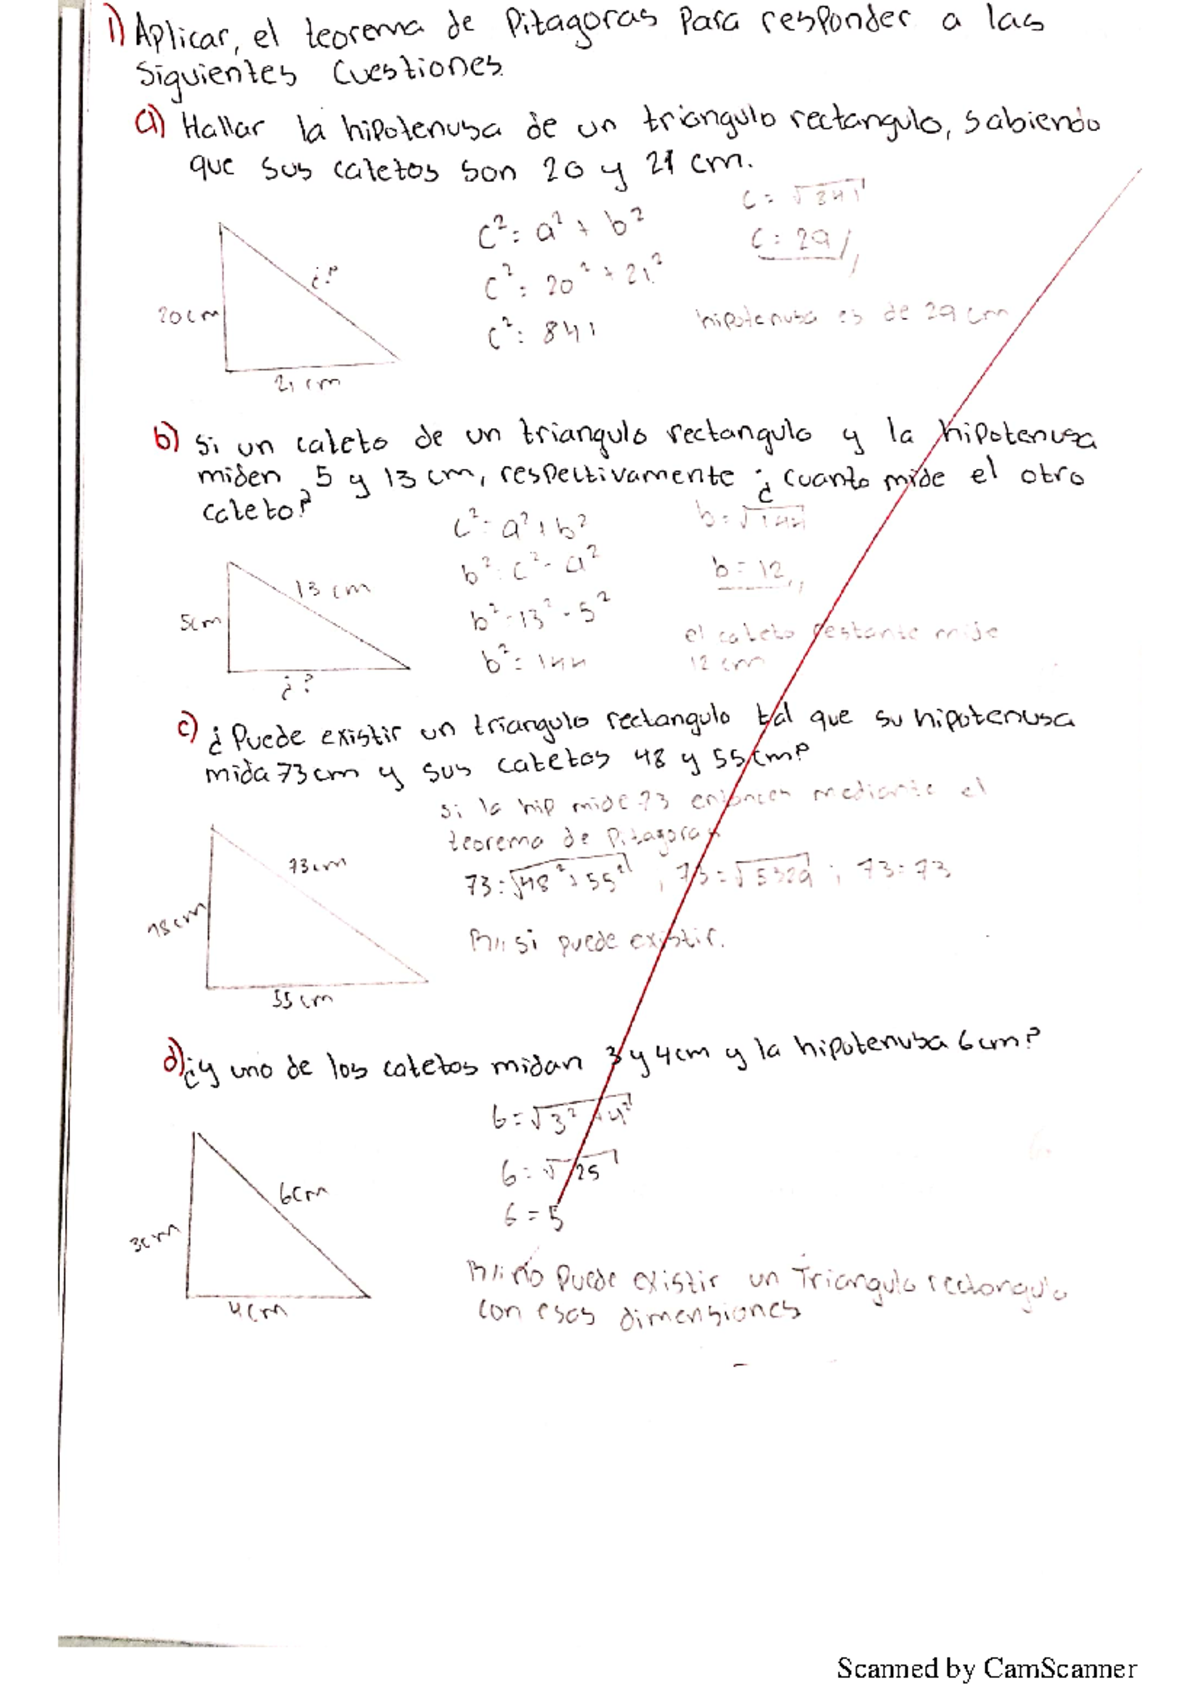 1) Aplicar, el teorema de Pitagoras para responder a las
siguientes cuestiones.
a) Hallar la hipotenusa de un triangulo rectangulo, sabiendo
que sus catetos son 20 y 21 cm.
c = √841
c² = a² + b²
c = 29//
¿?
c² = 20² + 21²
20cm
c² = 841
hipotenusa es de 29 cm
21 cm
b) Si un cateto de un triangulo rectangulo y la hipotenusa
miden 5 y 13 cm, respectivamente ¿cuanto mide el otro
cateto?
c² = a² + b²
b = √144
b² = c² - a²
b = 12//
13 cm
b² = 13² - 5²
5cm
el cateto restante mide
12 cm
b² = 144
¿?
c) ¿Puede existir un triangulo rectangulo tal que su hipotenusa
mida 73cm y sus catetos 48 y 55cm?
si la hip mide 73 entonces mediante el
teorema de Pitagoras
73cm
73 = √48² + 55² ; 73 = √5329 ; 73 = 73
48cm
R//: si puede existir.
55cm
d) ¿y uno de los catetos midan 3 y 4cm y la hipotenusa 6cm?
6 = √3² + 4²
6 = √25
6cm
6 = 5
3cm
R//: no puede existir un Triangulo rectangulo
con esas dimensiones
4cm
Scanned by CamScanner